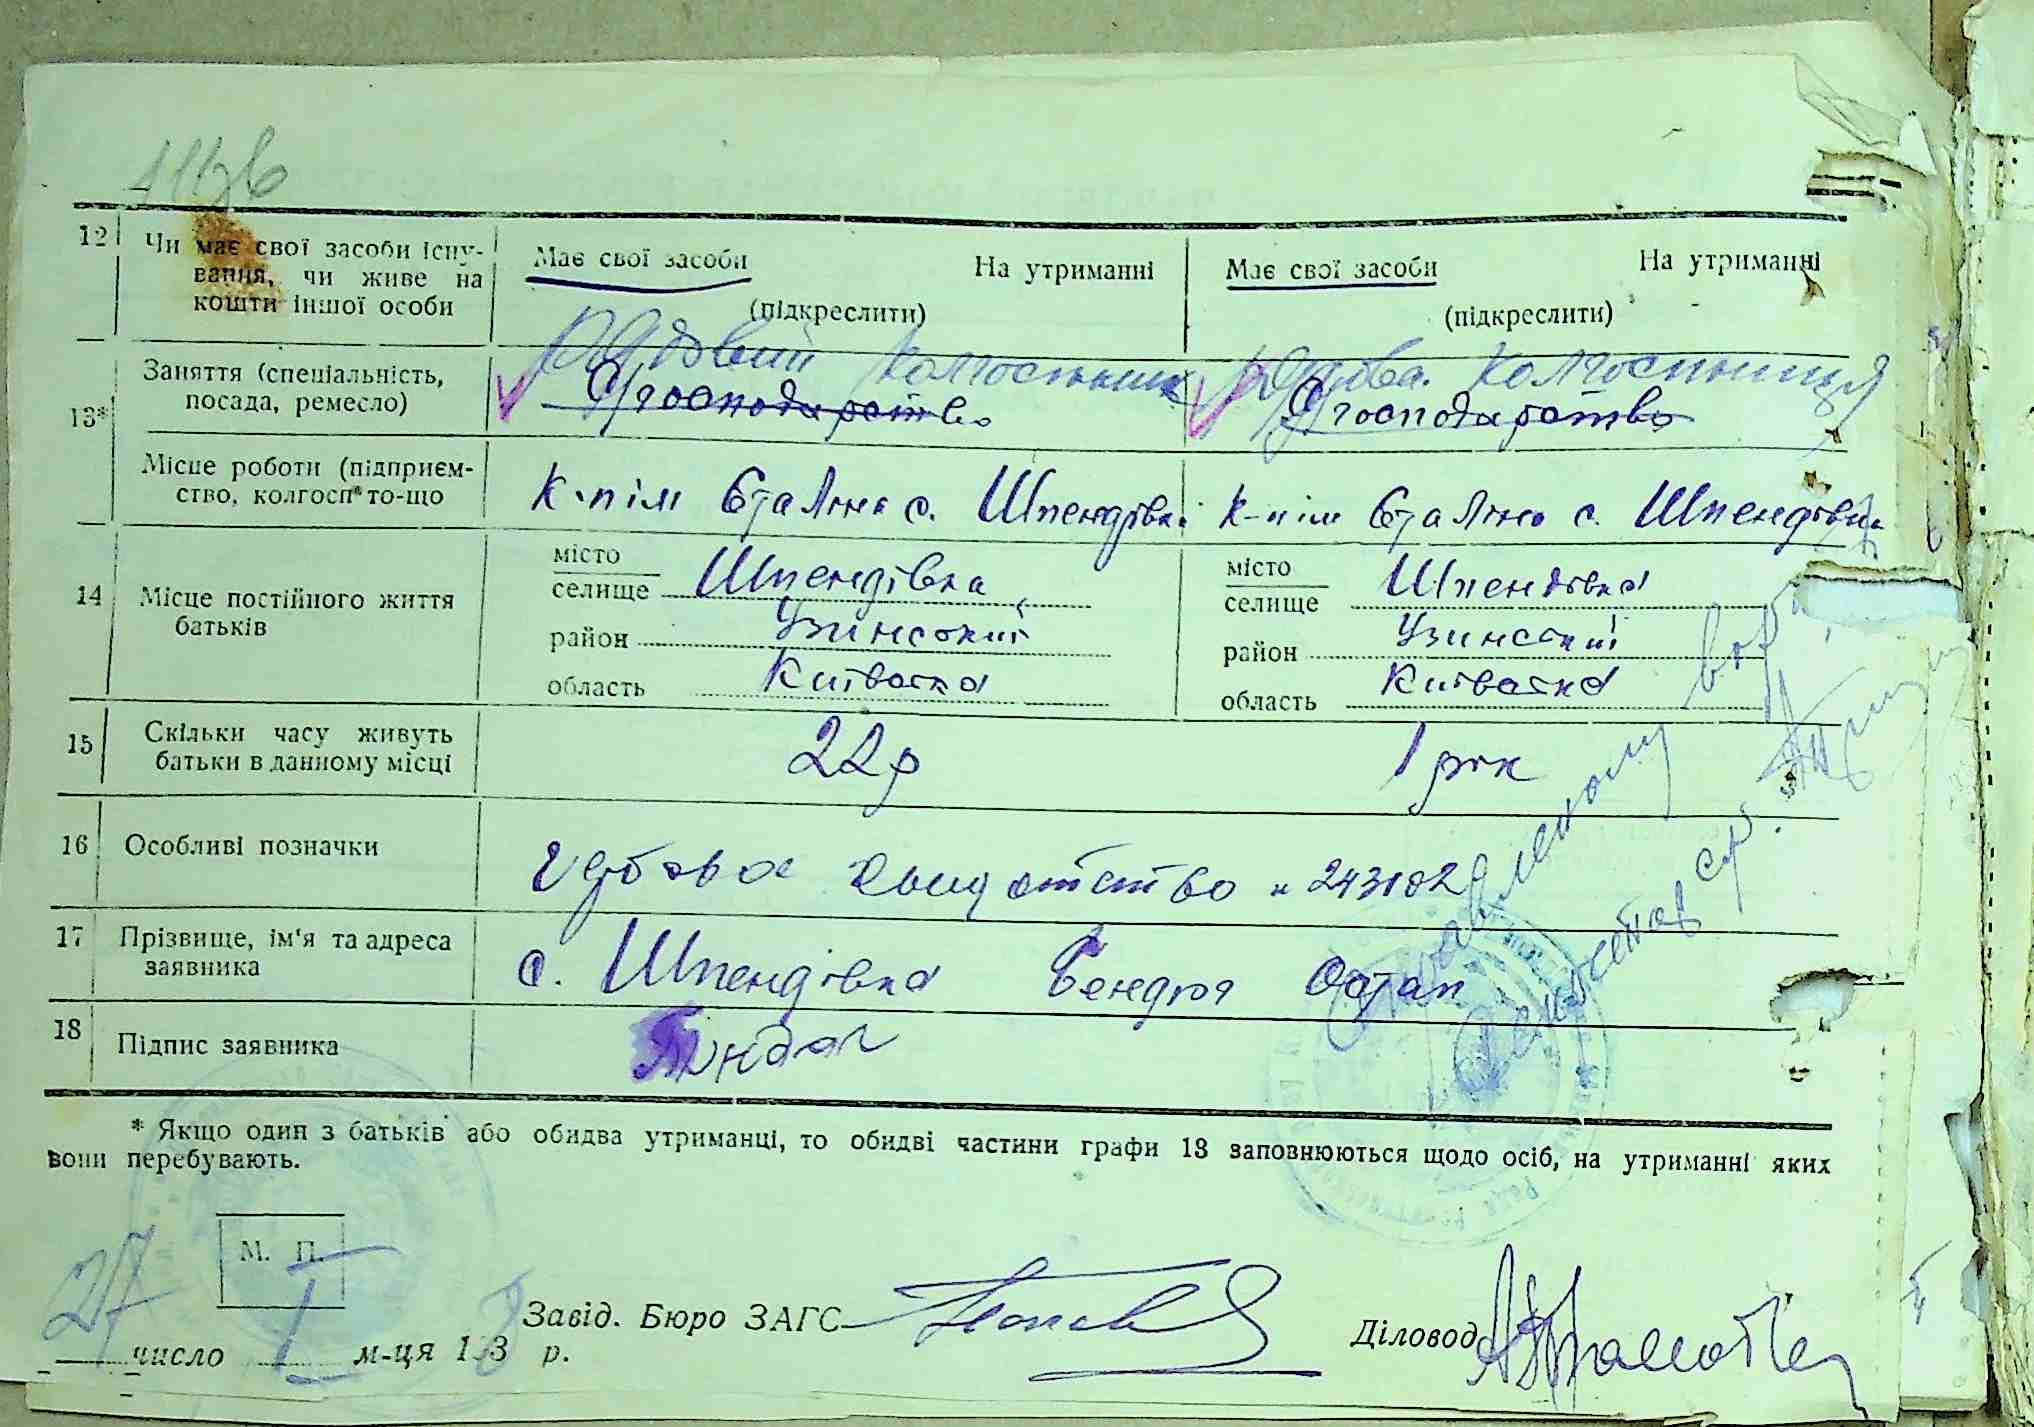 12 Чи має свої засоби існу-
вання, чи живе на
кошти іншої особи
Має свої засоби На утриманні
(підкреслити)
Має свої засоби На утриманні
(підкреслити)
13* Заняття (спеціальність,
посада, ремесло)
рядовий колгоспник
С/господарство
рядова колгоспниця
С/господарство
Місце роботи (підприєм-
ство, колгосп то-що
к-п ім Сталіна с. Шпендівка
к-п ім Сталіна с. Шпендівка
14 Місце постійного життя
батьків
місто
селище Шпендівка
район Узинський
область Київська
місто
селище Шпендівка
район Узинський
область Київська
15 Скільки часу живуть
батьки в данному місці
22 р
1 рік
16 Особливі позначки
свідоцтво н 243102
17 Прізвище, ім'я та адреса
заявника
с. Шпендівка Бендюг Остап
18 Підпис заявника
* Якщо один з батьків або обидва утриманці, то обидві частини графи 13 заповнюються щодо осіб, на утриманні яких
вони перебувають.
М. П.
27 число I м-ця 1938 р.
Завід. Бюро ЗАГС
Діловод